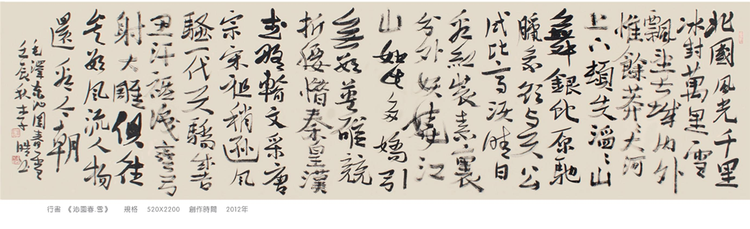 北國風光千里
冰封萬里雪
飄望長城内外
惟餘莽莽大河
上下頓失滔滔山
舞銀蛇原馳
蠟象欲與天公
試比高須晴日
看紅裝素裹
分外妖嬈江
山如此多嬌引
無數英雄競
折腰惜秦皇漢
武略輸文采唐
宗宋祖稍遜風
騷一代天驕成吉
思汗祗識彎弓
射大雕俱往
矣數風流人物
還看今朝
毛澤東沁園春雪
壬辰秋
行書 《沁園春.雪》 規格 520X2200 創作時間 2012年